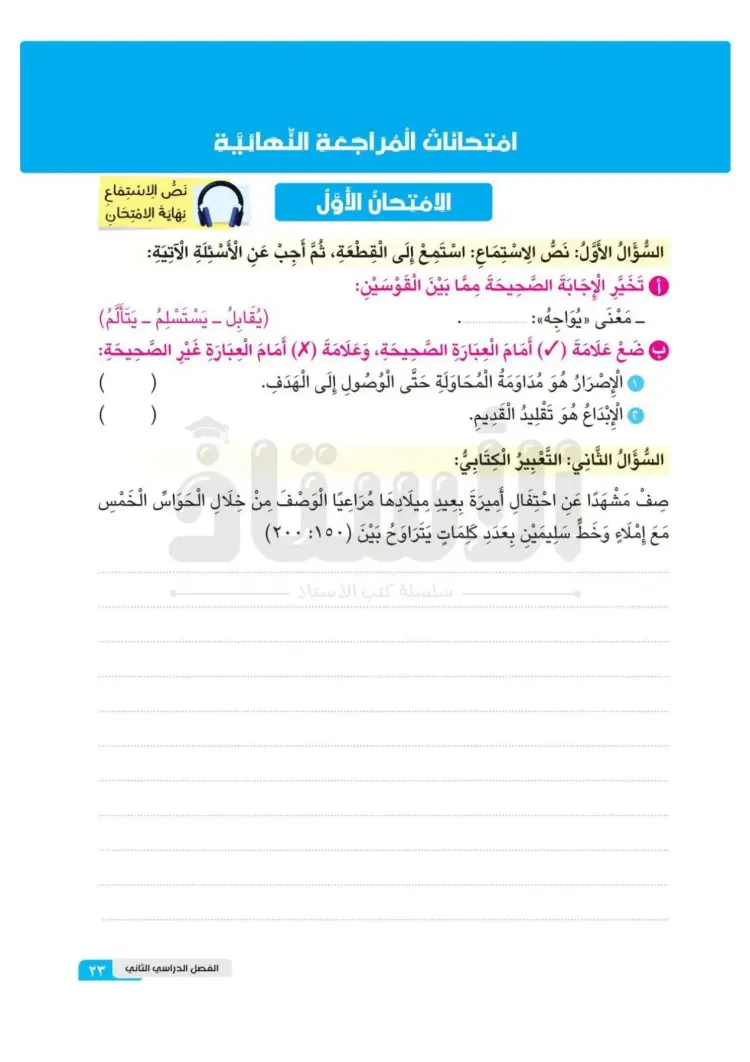 امْتِحَانَاتُ الْمُرَاجَعَةِ النِّهَائِيَّةِ
الِامْتِحَانُ الْأَوَّلُ
نَصُّ الِاسْتِمَاعِ
نِهَايَةُ الِامْتِحَانِ
السُّؤَالُ الْأَوَّلُ: نَصُّ الِاسْتِمَاعِ: اسْتَمِعْ إِلَى الْقِطْعَةِ، ثُمَّ أَجِبْ عَنِ الْأَسْئِلَةِ الْآتِيَةِ:
أ تَخَيَّرِ الْإِجَابَةَ الصَّحِيحَةَ مِمَّا بَيْنَ الْقَوْسَيْنِ:
ـ مَعْنَى «يُوَاجِهُ»: .................. . (يُقَابِلُ ـ يَسْتَسْلِمُ ـ يَتَأَلَّمُ)
ب ضَعْ عَلَامَةَ (✓) أَمَامَ الْعِبَارَةِ الصَّحِيحَةِ، وَعَلَامَةَ (✗) أَمَامَ الْعِبَارَةِ غَيْرِ الصَّحِيحَةِ:
١ الْإِصْرَارُ هُوَ مُدَاوَمَةُ الْمُحَاوَلَةِ حَتَّى الْوُصُولِ إِلَى الْهَدَفِ. ( )
٢ الْإِبْدَاعُ هُوَ تَقْلِيدُ الْقَدِيمِ. ( )
السُّؤَالُ الثَّانِي: التَّعْبِيرُ الْكِتَابِيُّ:
صِفْ مَشْهَدًا عَنِ احْتِفَالِ أَمِيرَةَ بِعِيدِ مِيلَادِهَا مُرَاعِيًا الْوَصْفَ مِنْ خِلَالِ الْحَوَاسِّ الْخَمْسِ
مَعَ إِمْلَاءٍ وَخَطٍّ سَلِيمَيْنِ بِعَدَدِ كَلِمَاتٍ يَتَرَاوَحُ بَيْنَ (١٥٠: ٢٠٠)
الأستاذ
سلسلة كتب الأستاذ
الفصل الدراسي الثاني
٢٣